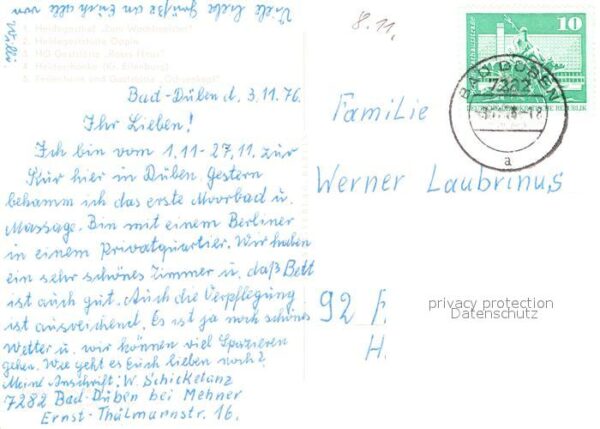 Viele liebe Grüße an Euch alle von
Willi.
1. Heidegasthof „Zum Wachtmeister“
2. Heidegaststätte Doglin
3. HO Gaststätte „Rotes Haus“
4. Heideschenke (Kr. Eilenburg)
5. Ferienheim und Gaststätte „Ochsenkopf“
8.11.
Bad-Düben d. 3.11.76
Ihr Lieben!
Ich bin vom 1.11-27.11. zur
Kur hier in Düben. Gestern
bekamm ich das erste Moorbad u.
Massage. Bin mit einem Berliner
in einem Privatquartier. Wir haben
ein sehr schönes Zimmer u. daß Bett
ist auch gut. Auch die Verpflegung
ist ausreichend. Es ist ja noch schönes
Wetter u. wir können viel Spazieren
gehen. Wie geht es Euch lieben noch?
Meine Anschrift: W. Schicketanz
7282 Bad-Düben bei Mehner
Ernst-Thälmannstr. 16.
Familie
Werner Laubrinus
92 F.
H.
10
DEUTSCHE DEMOKRATISCHE REPUBLIK
BAD DÜBEN
7282
-18
a
privacy protection
Datenschutz